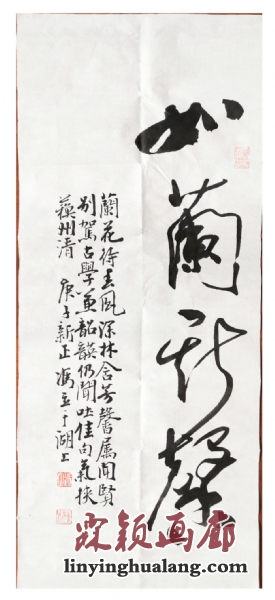 如蘭斯馨
蘭花待春風深林含芳馨屬聞賢
别駕古學兼韶韺仍聞吐佳句氣挾
蘋州清 庚子新正 馮立于湖上
霖颖画廊
linyinghualang.com